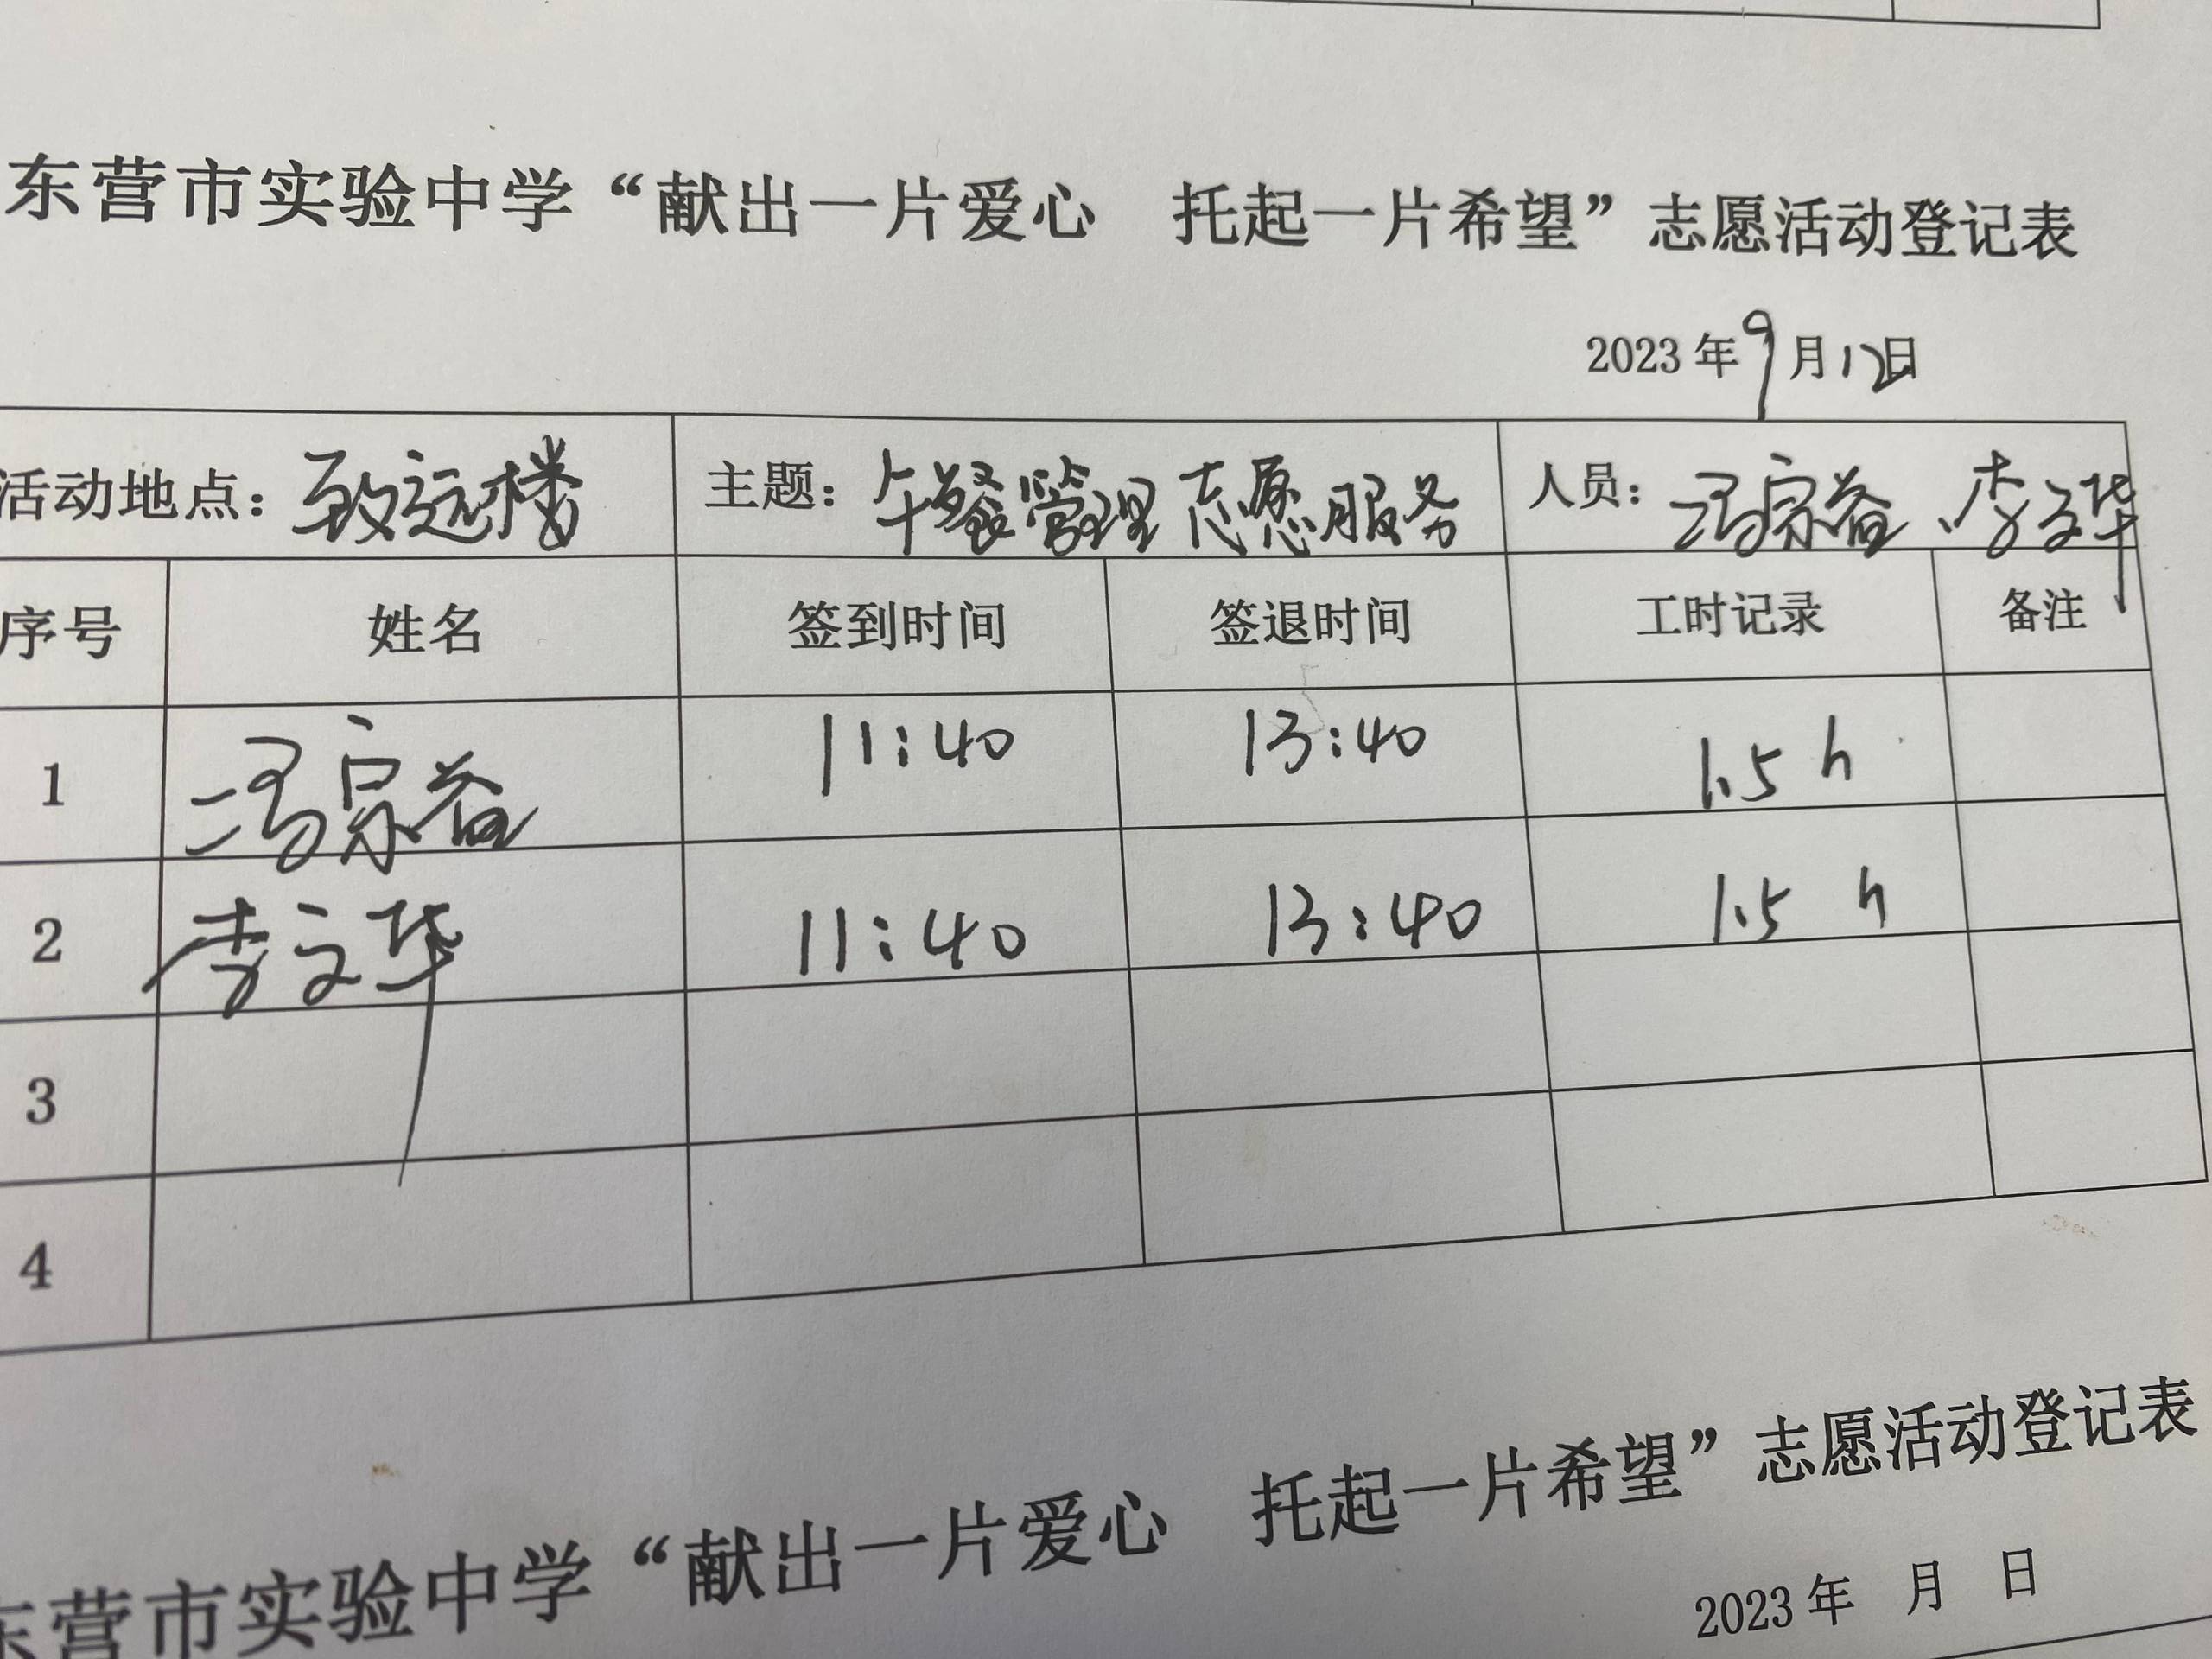 东营市实验中学“献出一片爱心 托起一片希望”志愿活动登记表
2023年9月12日
活动地点：致远楼 主题：午餐管理志愿服务 人员：冯宗益、李文华
序号 姓名 签到时间 签退时间 工时记录 备注
1 冯宗益 11:40 13:40 1.5 h
2 李文华 11:40 13:40 1.5 h
3
4
东营市实验中学“献出一片爱心 托起一片希望”志愿活动登记表
2023年 月 日